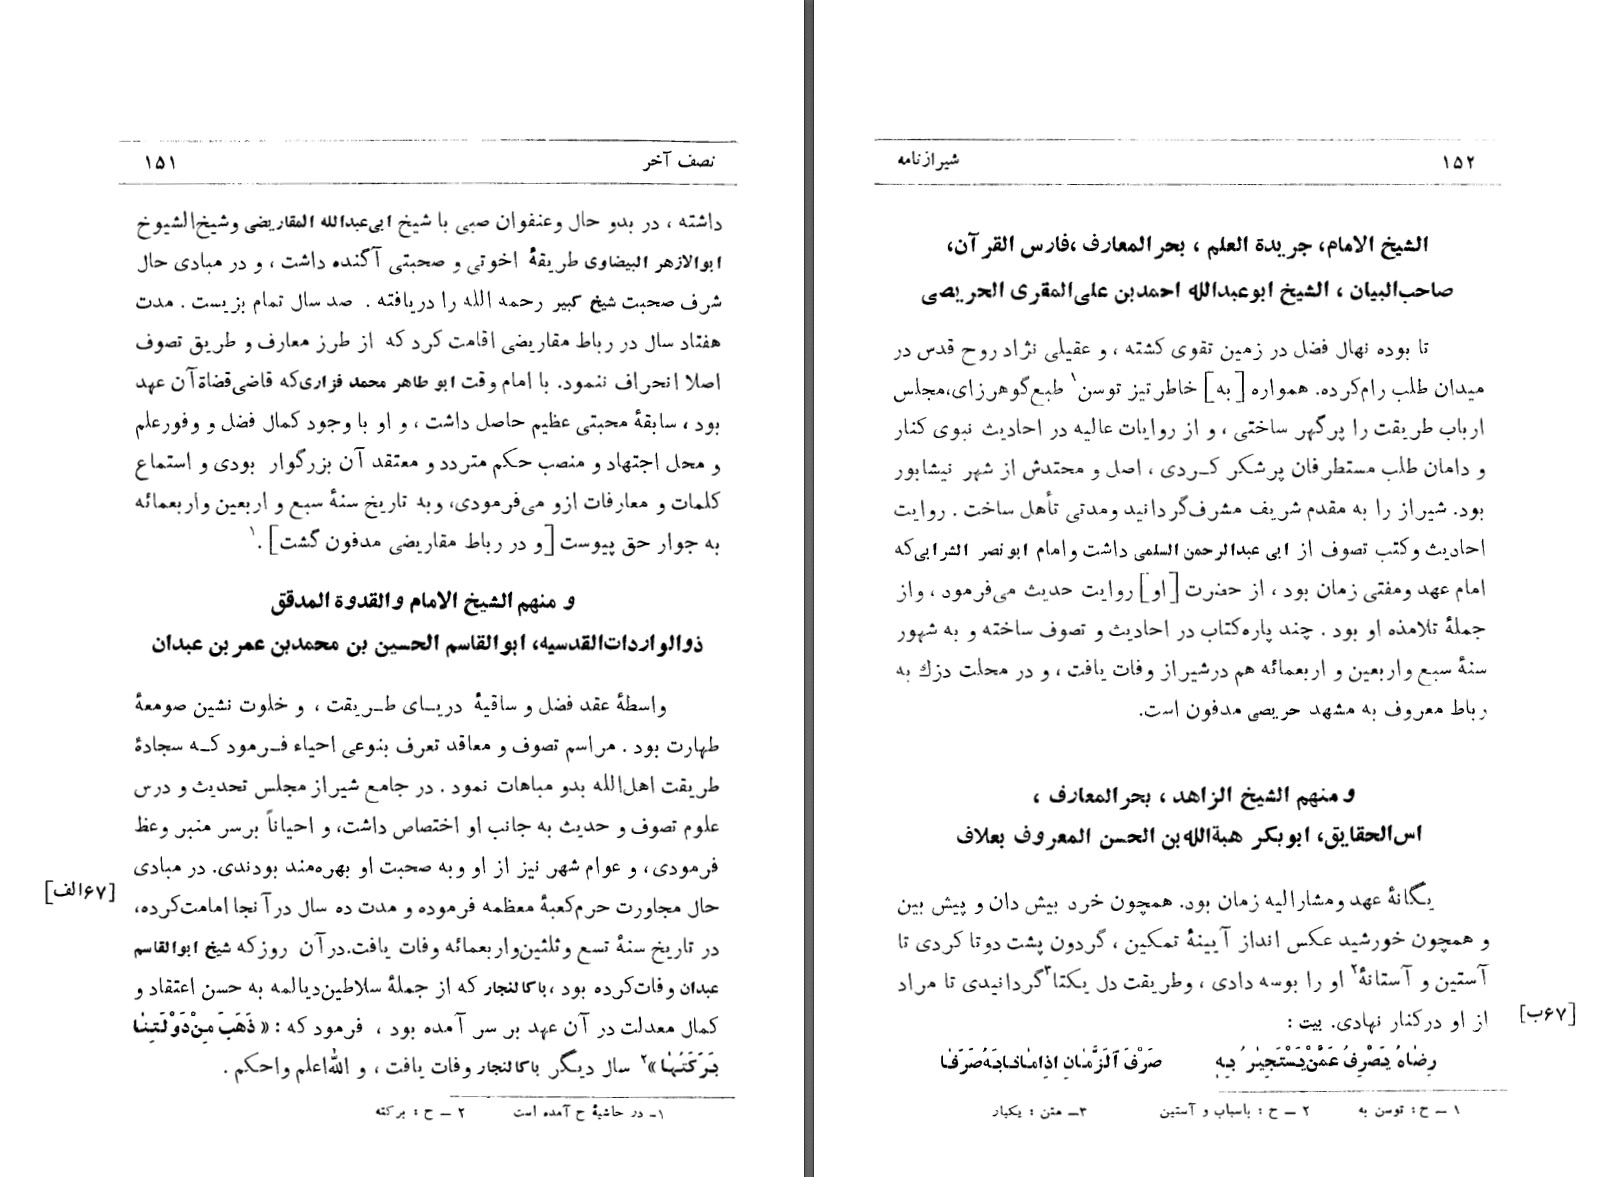 نصف آخر ۱۵۱
داشته ، در بدو حال وعنفوان صبی با شیخ ابی‌عبدالله المقاریضی وشیخ‌الشیوخ
ابوالازهر البیضاوی طریقهٔ اخوتی و صحبتی آگنده داشت ، و در مبادی حال
شرف صحبت شیخ کبیر رحمه الله را دریافته . صد سال تمام بزیست . مدت
هفتاد سال در رباط مقاریضی اقامت کرد که از طرز معارف و طریق تصوف
اصلا انحراف ننمود. با امام وقت ابو طاهر محمد فزاری‌که قاضی‌قضاة آن عهد
بود ، سابقهٔ محبتی عظیم حاصل داشت ، و او با وجود کمال فضل و وفورعلم
و محل اجتهاد و منصب حکم متردد و معتقد آن بزرگوار بودی و استماع
کلمات و معارفات ازو می‌فرمودی، وبه تاریخ سنهٔ سبع و اربعین واربعمائه
به جوار حق پیوست [و در رباط مقاریضی مدفون گشت] .۱
و منهم الشیخ الامام والقدوة المدقق
ذوالواردات‌القدسیه، ابوالقاسم الحسین بن محمدبن عمر بن عبدان
واسطهٔ عقد فضل و ساقیهٔ دریـای طـریقت ، و خلوت نشین صومعهٔ
طهارت بود . مراسم تصوف و معاقد تعرف بنوعی احیاء فـرمود کـه سجادهٔ
طریقت اهل‌الله بدو مباهات نمود . در جامع شیراز مجلس تحدیث و درس
علوم تصوف و حدیث به جانب او اختصاص داشت، و احیاناً برسر منبر وعظ
فرمودی، و عوام شهر نیز از او وبه صحبت او بهره‌مند بودندی. در مبادی
حال مجاورت حرم‌کعبهٔ معظمه فرموده و مدت ده سال در آنجا امامت‌کرده،
[۶۷الف]
در تاریخ سنهٔ تسع وثلثین‌واربعمائه وفات یافت.درآن روزکه شیخ ابوالقاسم
عبدان وفات‌کرده بود ،باکالنجار که از جملهٔ سلاطین‌دیالمه به حسن اعتقاد و
کمال معدلت در آن عهد بر سر آمده بود ، فرمود که : « ذَهَبَ مِنْ دَوْلَتِنٰا
بَرَکَتُهٰا »۲ سال دیگر باکالنجار وفات یافت ، و الله‌اعلم واحکم .
۱ـ در حاشیهٔ ح آمده است ۲ ـ ح : برکته
شیراز‌نامه ۱۵۲
الشیخ الامام، جریدة العلم ، بحرالمعارف ،فارس القرآن،
صاحب‌البیان ، الشیخ ابوعبدالله احمدبن علی‌المقری الحریصی
تا بوده نهال فضل در زمین تقوی کشته ، و عقیلی نژاد روح قدس در
میدان طلب رام‌کرده. همواره [به] خاطر تیز توسن۱ طبع‌گوهرزای،مجلس
ارباب طریقت را پرگهر ساختی ، و از روایات عالیه در احادیث نبوی کنار
و دامان طلب مستطرفان پرشکر کـردی ، اصل و محتدش از شهر نیشابور
بود. شیراز را به مقدم شریف مشرف‌گردانید ومدتی تأهل ساخت . روایت
احادیث وکتب تصوف از ابی عبدالرحمن السلمی داشت وامام ابونصر الشرابی‌که
امام عهد ومفتی زمان بود ، از حضرت [او] روایت حدیث می‌فرمود ، واز
جملهٔ تلامذه او بود . چند پاره‌کتاب در احادیث و تصوف ساخته و به شهور
سنهٔ سبع واربعین و اربعمائه هم درشیراز وفات یافت ، و در محلت دزك به
رباط معروف به مشهد حریصی مدفون است.
و منهم الشیخ الزاهد ، بحرالمعارف ،
اس‌الحقایق، ابوبکر هبةالله‌بن الحسن المعروف بعلاف
یگانهٔ عهد ومشارالیه زمان بود. همچون خرد بیش دان و پیش بین
و همچون خورشید عکس انداز آیینهٔ تمکین ، گردون پشت دوتا کردی تا
آستین و آستانهٔ۲ او را بوسه دادی ، وطریقت دل یکتا۳گردانیدی تا مراد
از او درکنار نهادی. بیت :
[۶۷ب]
رِضٰاهُ یَصْرِفُ عَمَّنْ یَسْتَجیٖرُ بِهِ صَرْفَ اَلزَّمٰانِ اِذامٰانٰابَهُ صَرَفٰا
۱ ـ ح : توسن به ۲ ـ ح : باسباب و آستین ۳ـ متن : یکبار